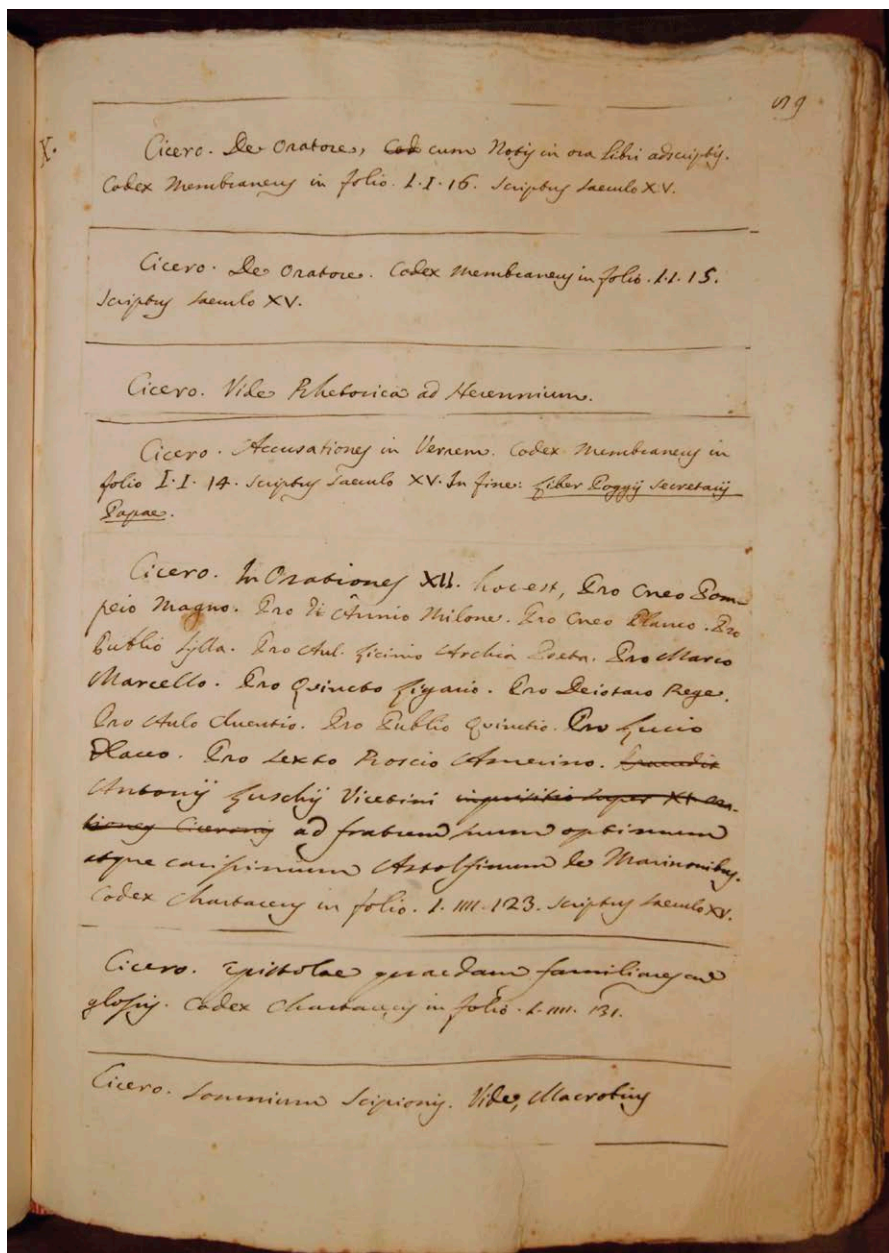 59
X.
Cicero. De Oratore, Cod cum Notis in ora libri adscriptis.
Codex Membraneus in folio. I. I. 16. Scriptus Saeculo XV.
Cicero. De Oratore. Codex Membraneus in folio. I. I. 15.
Scriptus Saeculo XV.
Cicero. Vide Rhetorica ad Herennium.
Cicero. Accusationes in Verrem. Codex Membraneus in
folio I. I. 14. Scriptus Saeculo XV. In fine: Liber Poggij Secretarij
Papae.
Cicero. In Orationes XII. hoc est, Pro Cneo Pom-
peio Magno. Pro Annio Milone. Pro Cneo Planco. Pro
Publio Sylla. Pro Aul. Licinio Archia Poeta. Pro Marco
Marcello. Pro Quincto Ligario. Pro Deiotaro Rege.
Pro Aulo Cluentio. Pro Publio Quinctio. Pro Lucio
Flacco. Pro Sexto Roscio Amerino.
Antonij Luschij Vicetini inquisitio super XI ora-
tiones Ciceronis ad fratrem suum optimum
atque carissimum Astolfinum de Marinonibus.
Codex Chartaceus in folio. I. IIII. 123. Scriptus Saeculo XV.
Cicero. Epistolae quaedam familiares cum
glossis. Codex Chartaceus in folio. I. IIII. 131.
Cicero. Somnium Scipionis. Vide, Macrobius